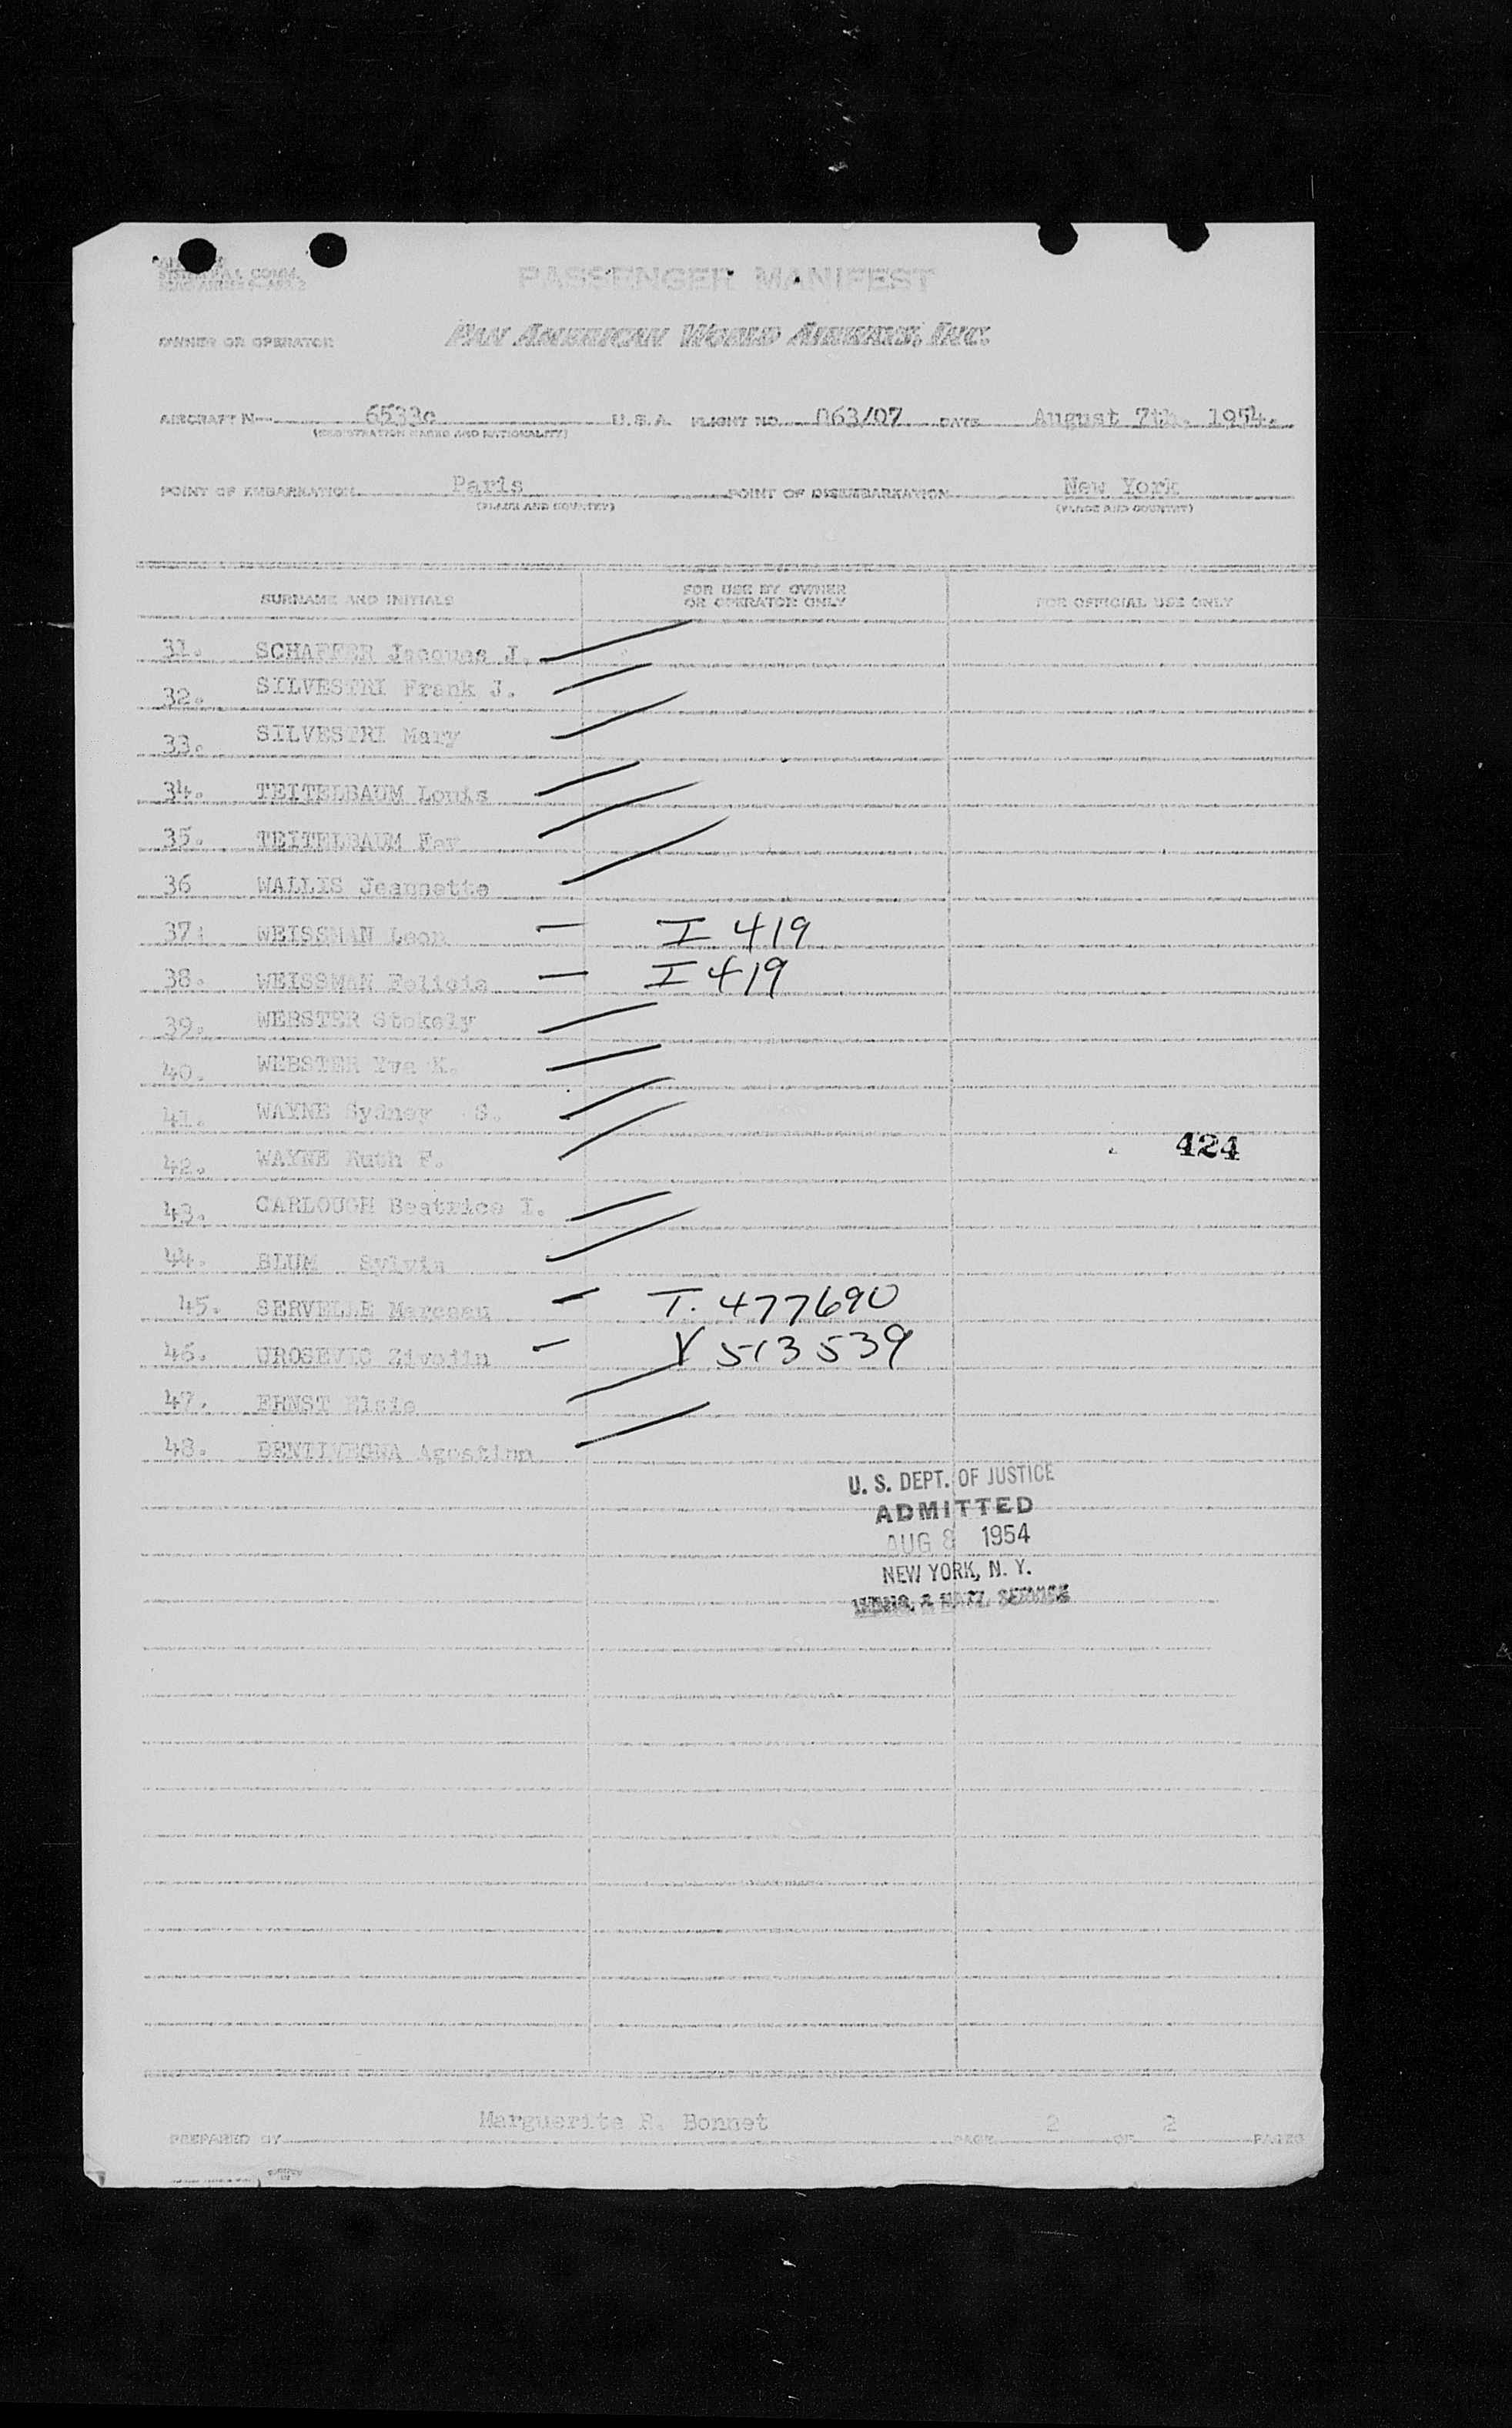 PASSENGER MANIFEST
OWNER OR OPERATOR PAN AMERICAN WORLD AIRWAYS, INC.
AIRCRAFT N 6533c U.S.A. FLIGHT NO. 063/07 DATE August 7th. 1954.
(REGISTRATION MARKS AND NATIONALITY)
POINT OF EMBARKATION Paris POINT OF DISEMBARKATION New York
(PLACE AND COUNTRY) (PLACE AND COUNTRY)
SURNAME AND INITIALS FOR USE BY OWNER OR OPERATOR ONLY FOR OFFICIAL USE ONLY
31. SCHAFFER Jacques J.
32. SILVESTRI Frank J.
33. SILVESTRI Mary
34. TEITELBAUM Louis
35. TEITELBAUM Fay
36 WALLIS Jeannette
37. WEISSMAN Leon I 419
38. WEISSMAN Felicia I 419
39. WEBSTER Stokely
40. WEBSTER Iva K.
41. WAYNE Sydney S.
42. WAYNE Ruth F. 424
43. CARLOUGH Beatrice I.
44. BLUM Sylvia
45. SERVELLE Marceau T. 477690
46. UROSEVIC Zivojin V 513539
47. ERNST Elsie
48. BENTIVEGNA Agostino
U. S. DEPT. OF JUSTICE
ADMITTED
AUG 8 1954
NEW YORK, N. Y.
IMMIG. & NATZ. SERVICE
PREPARED BY Marguerite R. Bonnet PAGE 2 OF 2 PAGES